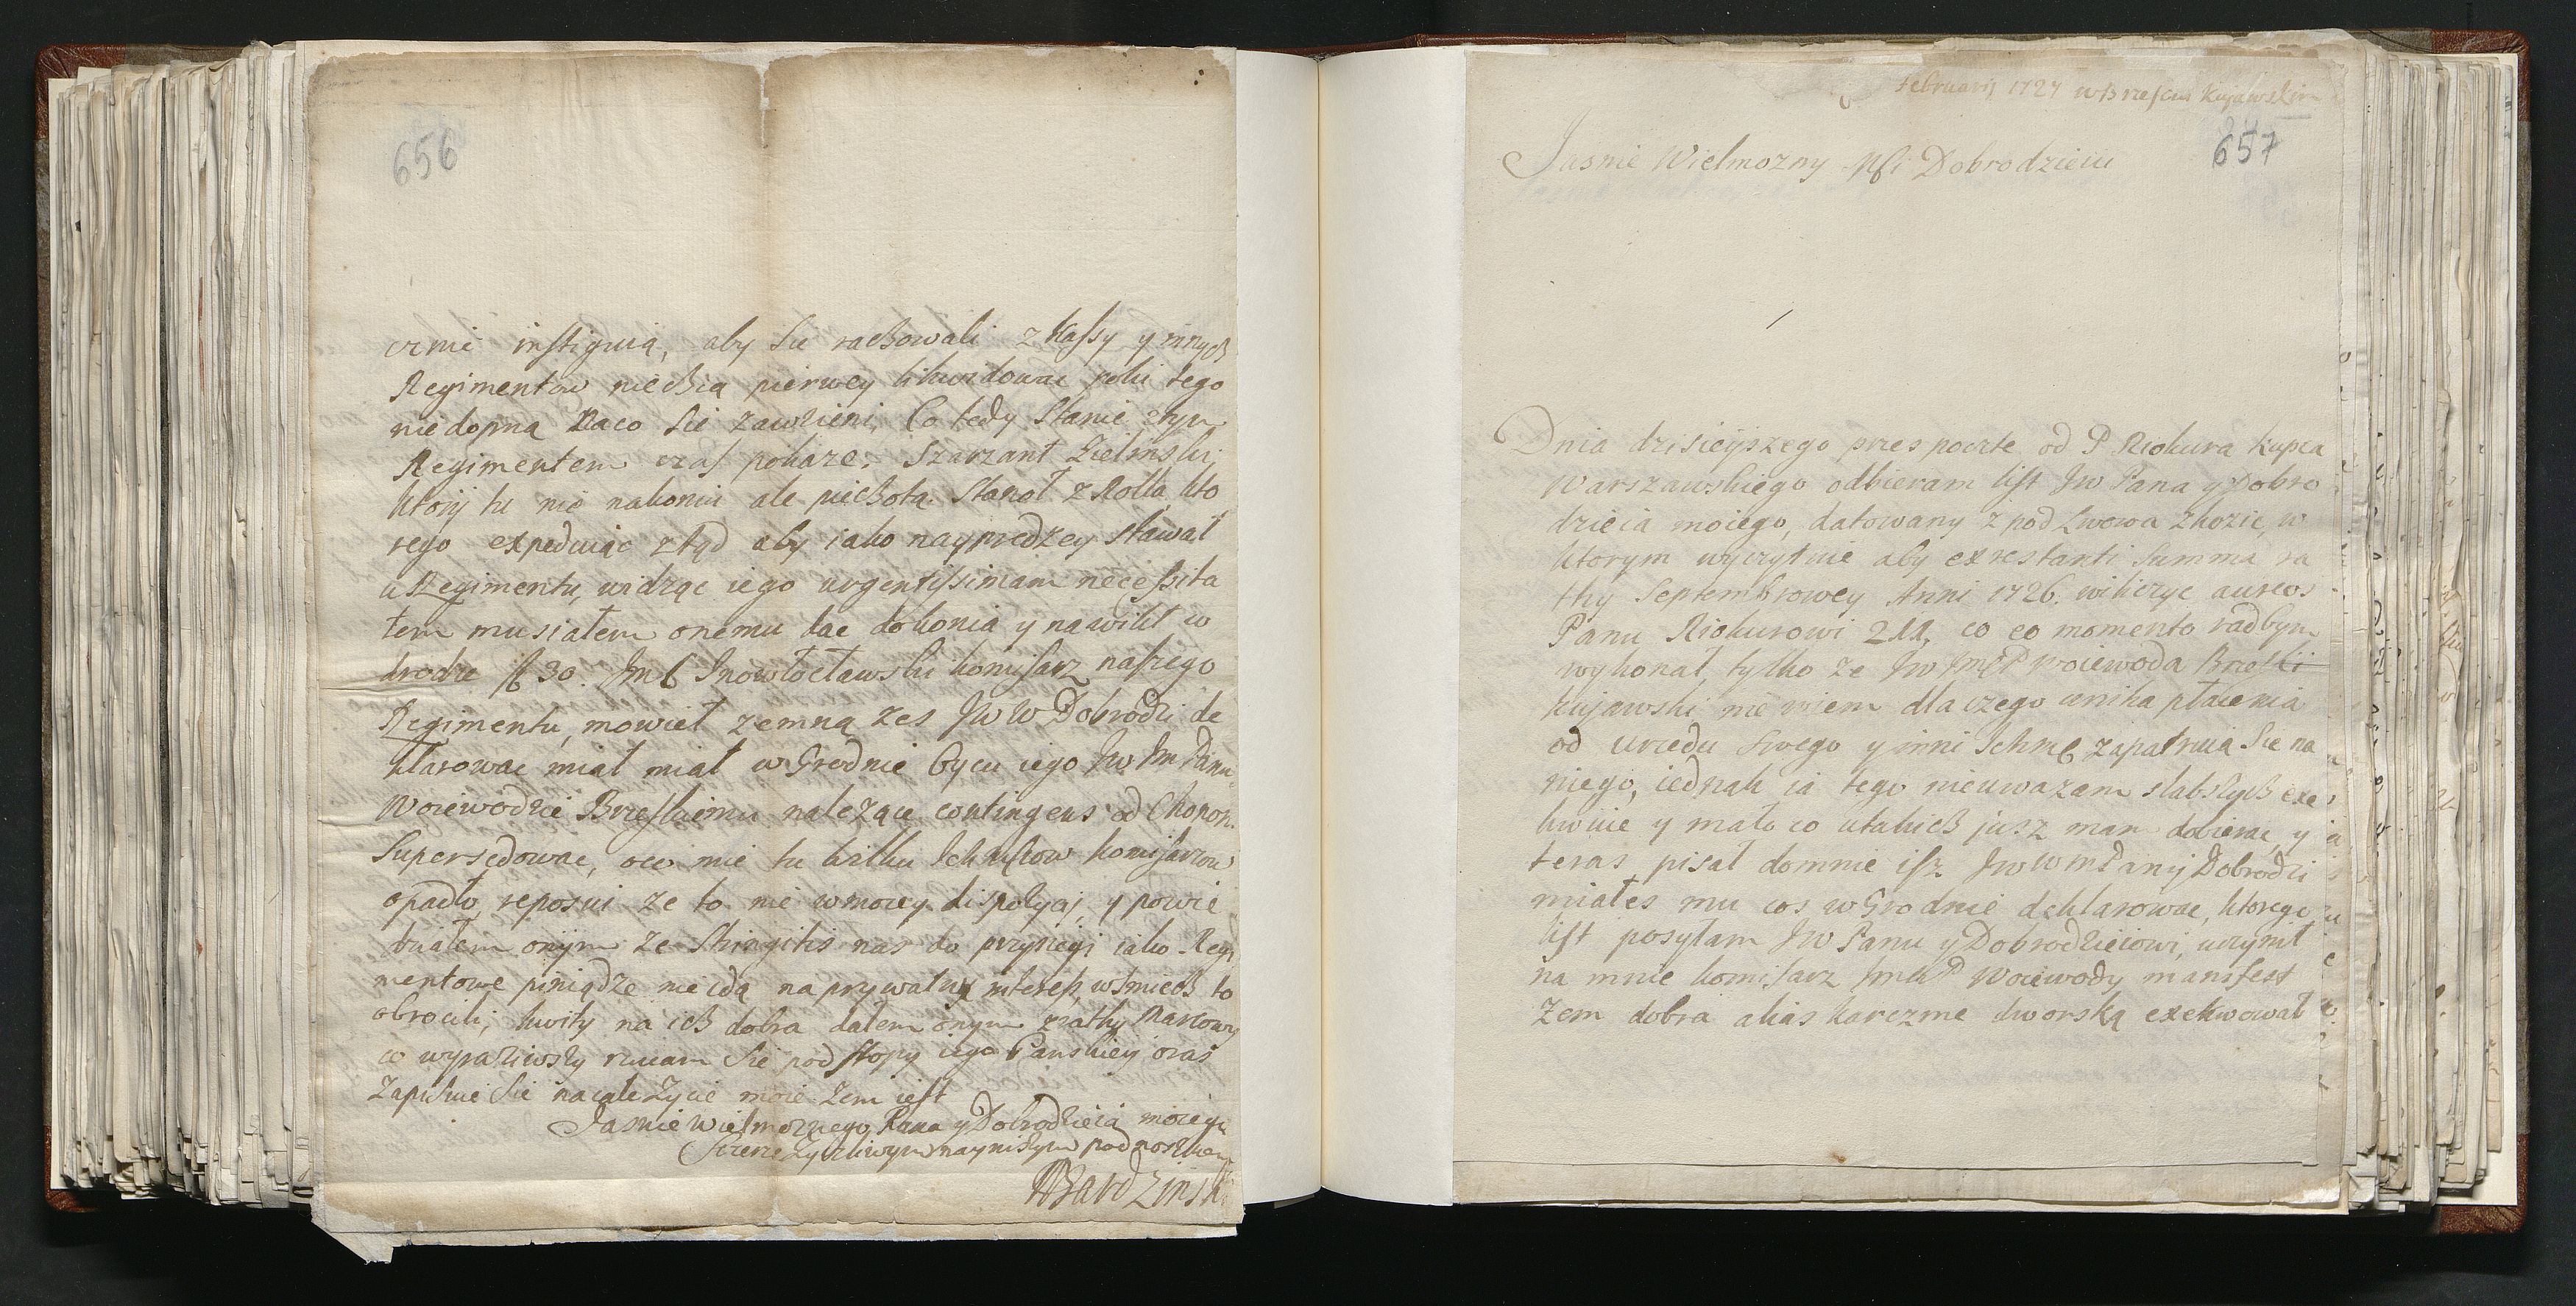 656
mie instiguią, aby sie rachowali z kassy y innych
Regimentow niechcą pierwey likwidowac poki tego
niedopną naco sie zawzieni, Co tedy stanie ztym
Regimentem czas pokaze. Szarzant Zielinski
ktory tu nie nakoniu ale piechotą stanoł z Kolla kto
rego expediuiąc ztąd aby iako nayprędzey stawał
u Regimentu, widząc iego urgentissimam necessita
tem musiałem onemu dac do konia y nawikt w
drodze 30. Inowłocławski komisarz naszego
Regimentu, mowieł zemną zes JW W Dobrodzi de
klarowac miał miał w Grodnie bycu iego Jw Im Panu
Woiewodzie Brzeskiemu nalezące contingens od
Supersedowac, oco mie tu kilku Ichmsciow komisarzow
opadło, reposui ze to nie w moiey dispozycyi, y powie
działem onym ze stringitis nas do przysięgi iako Regi
mentowe piniądze nie idą na prywatny interess, wsmiech to
obrocili, kwity na ich dobra dałem onym z rathy Marcowy
co wyraziwszy rzucam sie pod stopy iego Panskiey oraz
Zapisuie sie na całe zycie moie zem iest
Jasnie Wielmoznego Pana y Dobrodzieia moiego
Szczerze zyczliwym naynizszym podnoszkiem
Bardzinski
Februarij 1727 w Brzesciu Kujawskim
657
Jasnie Wielmozny Dobrodzieiu
Dnia dzisieyszego przes poczte od P Riokura kupca
Warszawskiego odbieram list Jw Pana y Dobro
dzieia moiego, datowany z pod Lwowa w
ktorym wyczytuie aby ex restanti summa ra
thy Septembrowey Anni 1726. wiliczyc aureos
Panu Riokurowi 211, co eo momento radbym
wykonał, tylko ze Jw ImP Woiewoda Brzeski
Kujawski nie wiem dla czego unika płacenia
od urzedu swego y inni Ichm zapatruią sie na
niego, iednak ia tego nieuwazam slabszych exe
kwuie y mało co utakich jusz mam dobierac, y
teras pisał domnie isz Jw W m Pan y Dobrodzi
miałes mu cos w Grodnie deklarowac, ktorego
list posyłam JW Panu y Dobrodzieiowi, uczynił
na mnie komisarz Woiewody manifest
Zem dobra alias karczme dworską exekwował